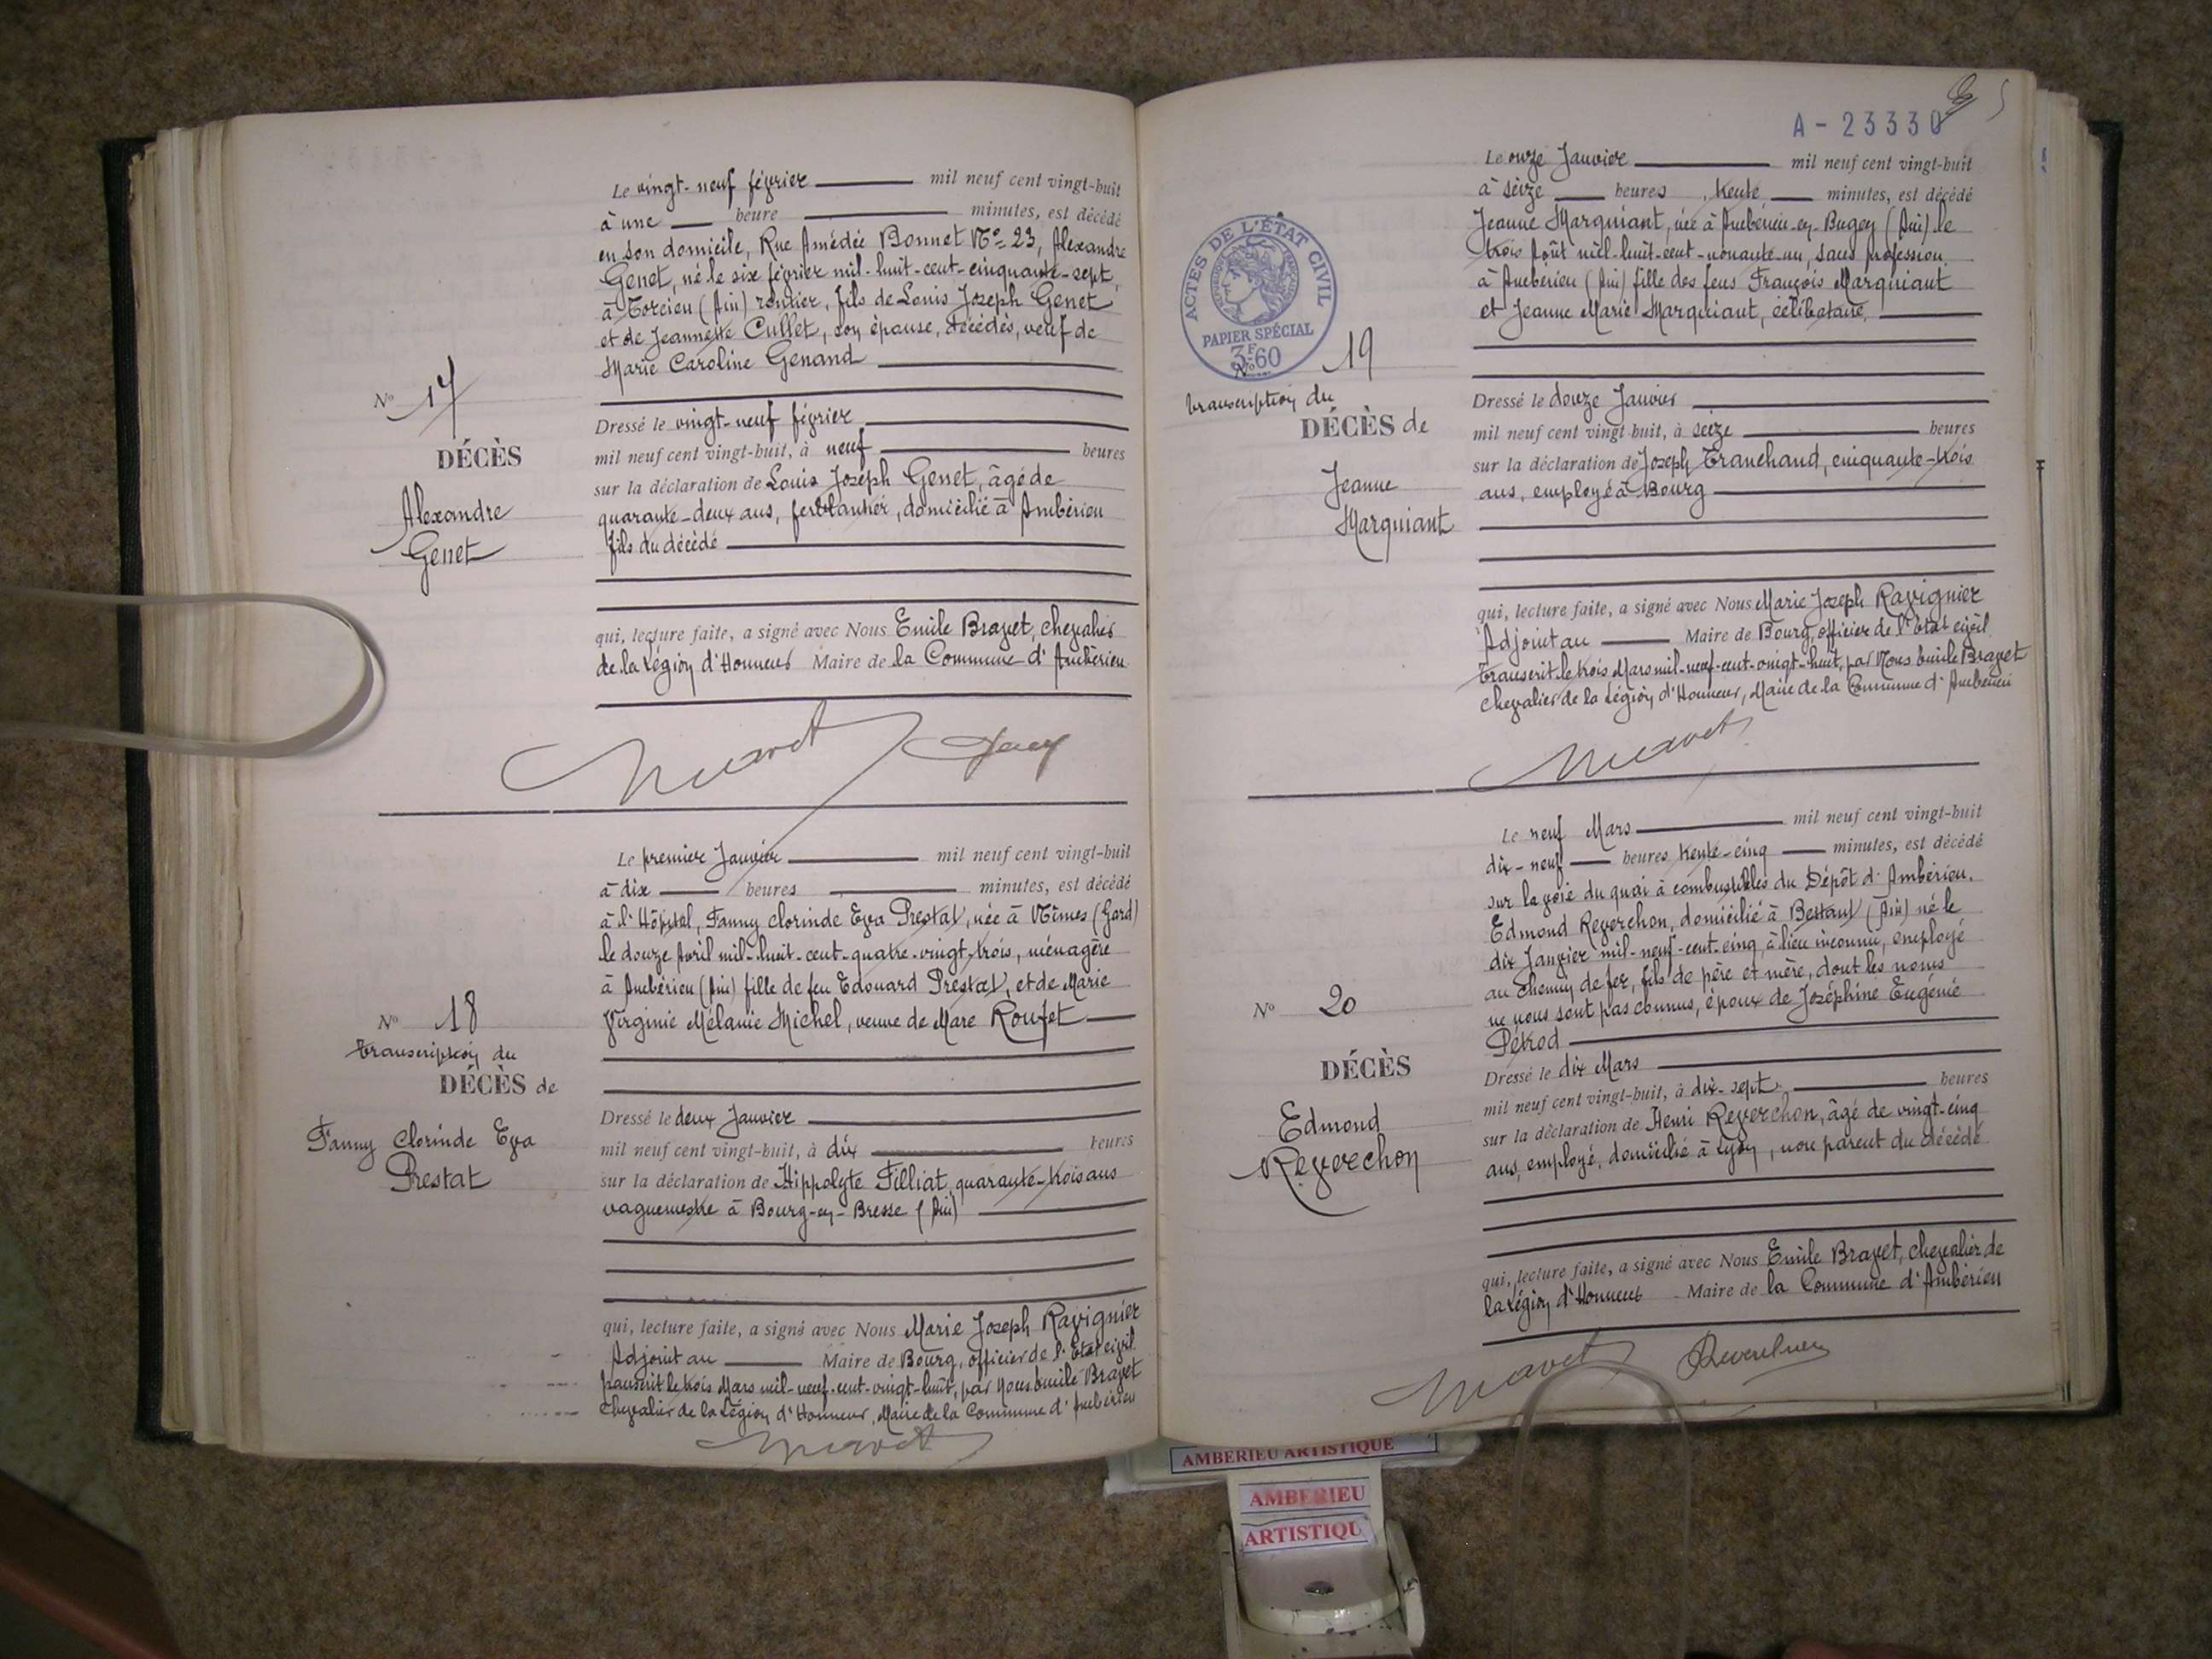 Le vingt-neuf février mil neuf cent vingt-huit
à une heure minutes, est décédé
en son domicile, Rue Amédée Bonnet No 23, Alexandre
Genet, né le six février mil-huit-cent-cinquante-sept,
à Torcieu (Ain) rentier, fils de Louis Joseph Genet
et de Jeannette Cullet, son épouse, décédés, veuf de
Marie Caroline Genand
No 17
DÉCÈS
Alexandre
Genet
Dressé le vingt-neuf février
mil neuf cent vingt-huit, à neuf heures
sur la déclaration de Louis Joseph Genet, âgé de
quarante-deux ans, ferblantier, domicilié à Ambérieu
fils du décédé
qui, lecture faite, a signé avec Nous Emile Bravet, chevalier
de la Légion d'Honneur Maire de la Commune d'Ambérieu
Le premier Janvier mil neuf cent vingt-huit
à dix heures minutes, est décédé
à l'Hôpital, Fanny Clorinde Eva Prestat, née à Nîmes (Gard)
le douze Avril mil-huit-cent-quatre-vingt-trois, ménagère
à Ambérieu (Ain) fille de feu Edouard Prestat, et de Marie
Virginie Mélanie Michel, veuve de Marc Roufet
No 18
Transcription du
DÉCÈS de
Fanny Clorinde Eva
Prestat
Dressé le deux Janvier
mil neuf cent vingt-huit, à dix heures
sur la déclaration de Hippolyte Filliat, quarante-trois ans
vaguemestre à Bourg-en-Bresse (Ain)
qui, lecture faite, a signé avec Nous Marie Joseph Ravignier
Adjoint au Maire de Bourg, officier de l'Etat civil
Transcrit le trois Mars mil-neuf-cent-vingt-huit, par Nous Emile Bravet
Chevalier de la Légion d'Honneur, Maire de la Commune d'Ambérieu
A - 23330
Le onze Janvier mil neuf cent vingt-huit
à seize heures trente minutes, est décédé
Jeanne Marquiant, née à Ambérieu-en-Bugey (Ain) le
trois Août mil-huit-cent-nonante-un, sans profession
à Ambérieu (Ain) fille des feus François Marquiant
et Jeanne Marie Marquiant, célibataire
ACTES DE L'ÉTAT CIVIL
RÉPUBLIQUE FRANÇAISE
PAPIER SPÉCIAL
3F60
No 19
Transcription du
DÉCÈS de
Jeanne
Marquiant
Dressé le douze Janvier
mil neuf cent vingt-huit, à seize heures
sur la déclaration de Joseph Tranchand, cinquante-trois
ans, employé à Bourg
qui, lecture faite, a signé avec Nous Marie Joseph Ravignier
Adjoint au Maire de Bourg, officier de l'état civil
Transcrit le trois Mars mil-neuf-cent-vingt-huit, par Nous Emile Bravet
Chevalier de la Légion d'Honneur, Maire de la Commune d'Ambérieu
Le neuf Mars mil neuf cent vingt-huit
dix-neuf heures trente-cinq minutes, est décédé
sur la voie du quai à combustibles du Dépôt d'Ambérieu,
Edmond Reverchon, domicilié à Bettant (Ain) né le
dix Janvier mil-neuf-cent-cinq, à lieu inconnu, employé
au chemin de fer, fils de père et mère, dont les noms
ne nous sont pas connus, époux de Joséphine Eugénie
Pétrod
No 20
DÉCÈS
Edmond
Reverchon
Dressé le dix Mars
mil neuf cent vingt-huit, à dix-sept heures
sur la déclaration de Henri Reverchon, âgé de vingt-cinq
ans, employé, domicilié à Lyon, non parent du décédé
qui, lecture faite, a signé avec Nous Emile Bravet, chevalier de
la Légion d'Honneur Maire de la Commune d'Ambérieu
AMBERIEU ARTISTIQUE
AMBERIEU
ARTISTIQU